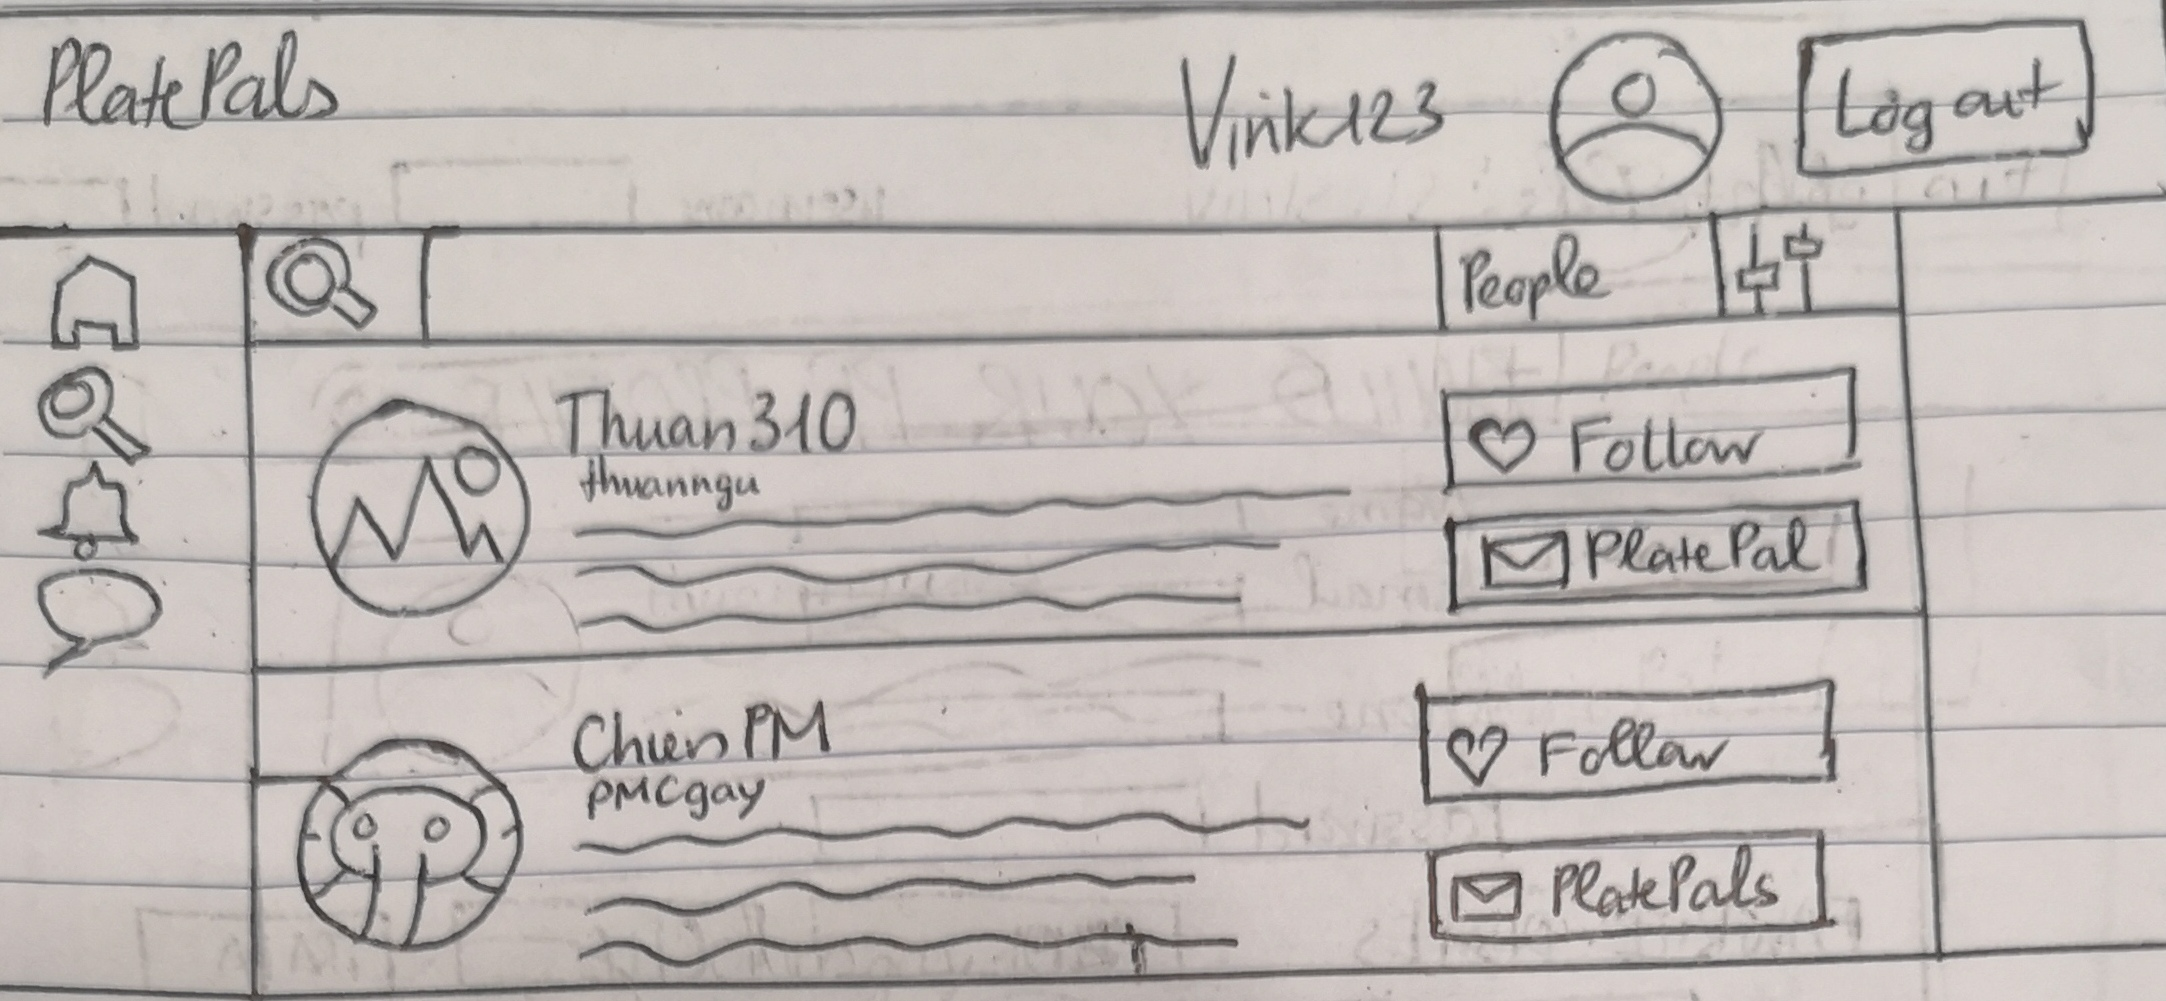 PlatePals
Vink123
Log out
People
Thuan310
thuanngu
Follow
PlatePal
ChienPM
PMCgay
Follow
PlatePals